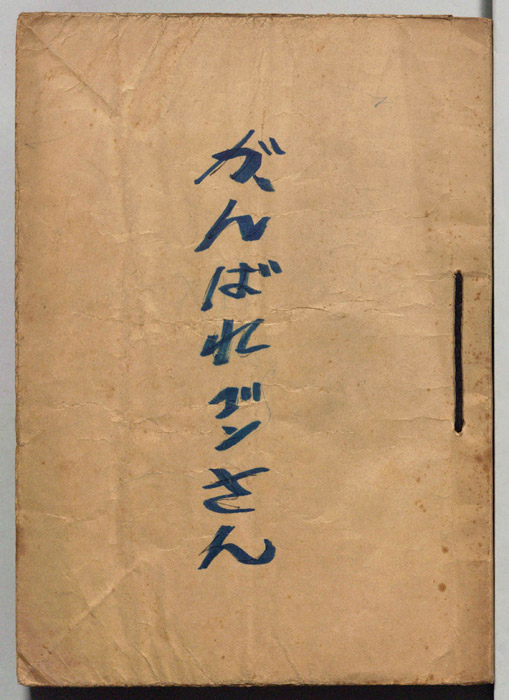 がんばれゴンさん